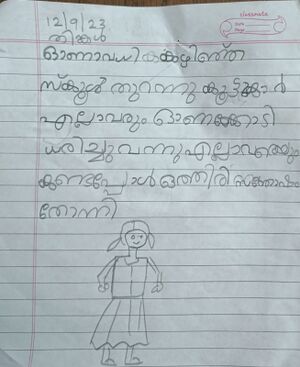 classmate
Date
Page
12/9/23
തിങ്കൾ
ഓണാവധി കഴിഞ്ഞ്
സ്ക്കൂൾ തുറന്നു കൂട്ടുകാർ
എല്ലാവരും ഓണക്കോടി
ധരിച്ചു വന്നു എല്ലാവരെയും
കണ്ടപ്പോൾ ഒത്തിരി സന്തോഷം
തോന്നി